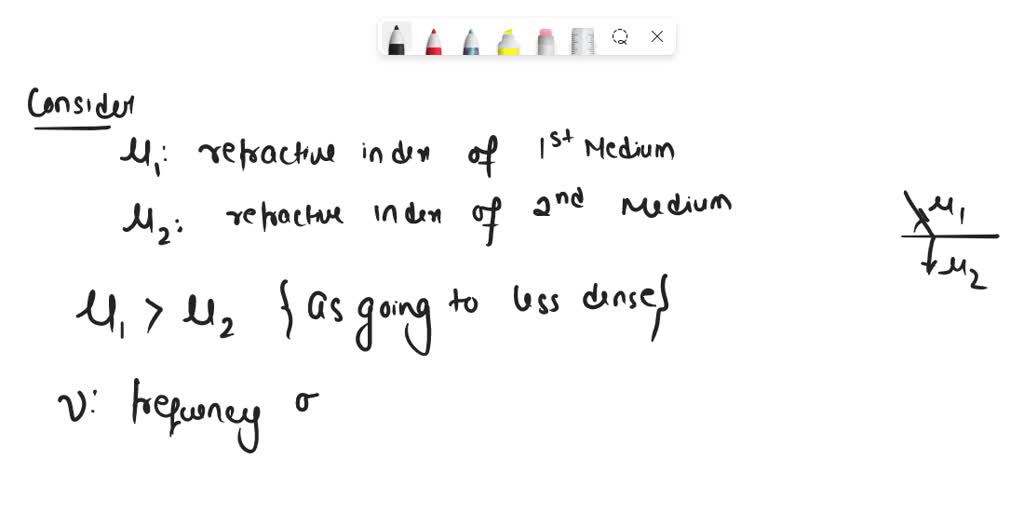 Consider
μ₁: refractive index of 1st Medium
μ₂: refractive index of 2nd Medium
μ₁
μ₂
μ₁ > μ₂ {as going to less dense}
ν: frequency o